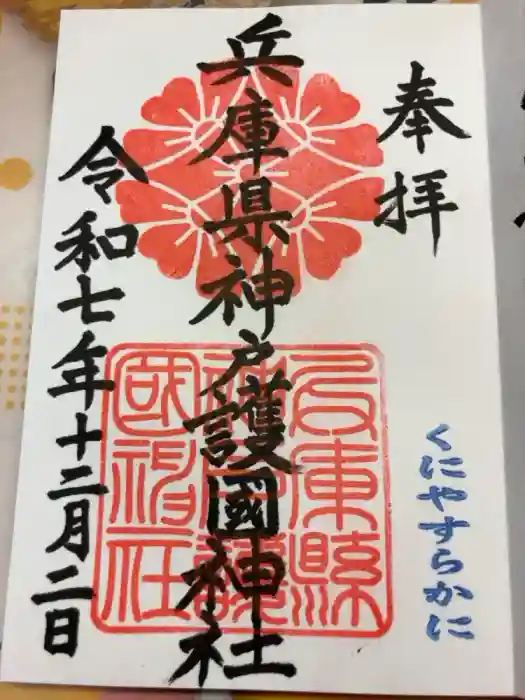 奉拝
くにやすらかに
兵庫県神戸護國神社
兵庫縣
神戸護
國神社
令和七年十二月二日